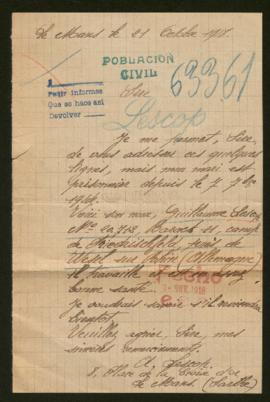 Le Mans le 21 Octobre 1918.
POBLACIÓN
CIVIL
63361
Pedir informes
Que se hace así
Devolver
Sire
Lescop
Je me permet, Sire
de vous adresser ces quelques
lignes, mais mon mari est
prisonnier depuis le 7 7bre
1914.
Voici son nom, Guillaume Lescop
camp
de Friedrichsfeld, près de
Wesel sur Rhin (Allemagne)
Il travaille et est en assez
bonne santé.
Je voudrais savoir s'il reviendra
bientôt
Veuillez agréer Sire, mes
sincères remerciements.
Lescop
8, Place de la Croix d'or
Le Mans. (Sarthe)
1918